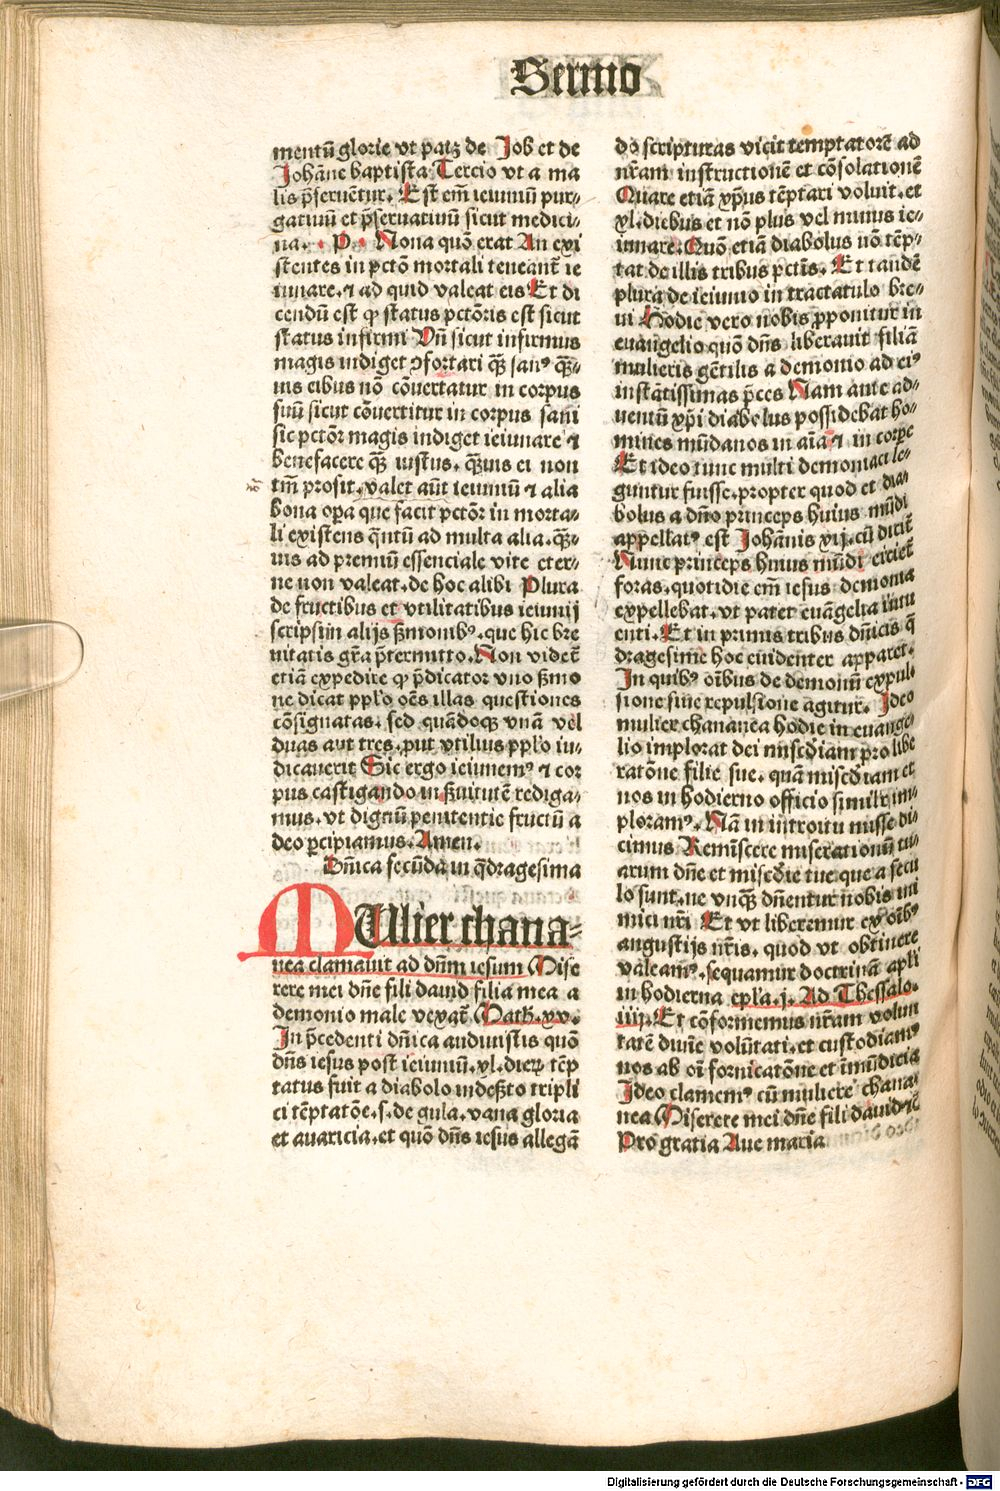 Sermo
mentū glorie vt patꝫ de Job et de
Johāne baptista Tercio vt a ma
lis p̄seruētur. Est em̄ ieiuniū pur⸗
gatiuū et p̄seruatiuū sicut medici⸗
na. P. Nona quō erat An exi
stentes in pctō mortali teneant̄ ie
iunare.⁊ ad quid valeat eis Et di
cendū est ꝙ status pctōris est sicut
status infirmi Vn̄ sicut infirmus
magis indiget ↄfortari q̄ꝫ sanꝰ q̄ꝫ⸗
uis cibus nō cōuertatur in corpus
suū sicut cōuertitur in corpus sani
sic pctōr magis indiget ieiunare ⁊
benefacere q̄ꝫ iustus. q̄ꝫuis ei non
tm̄ prosit. valet aūt ieiuniū ⁊ alia
bona oꝑa que facit pctōr in morta⸗
li existens q̄ntū ad multa alia. q̄ꝫ⸗
uis ad premiū essenciale vite eter⸗
ne non valeat. de hoc alibi Plura
de fructibus et vtilitatibus ieiunij
scripsim alijs ẜmonibꝰ. que hic bre
uitatis gr̄a p̄termitto. Non videt̄
etiā expedire ꝙ p̄dicator vno ẜmo
ne dicat ppl'o oēs illas questiones
cōsignatas. sed quādoqꝫ vnā vel
duas aut tres. put vtilius ppl'o iu⸗
dicauerit Sic ergo ieiunemꝰ ⁊ cor
pus castigando in ẜuitutē rediga⸗
mus. vt dignū penitentie fructū a
deo ꝑcipiamus. Amen.
Dn̄ica secūda in q̄dragesima
MUlier chana⸗
nea clamauit ad dn̄m iesum Mise
rere mei dn̄e fili dauid filia mea a
demonio male vexat̄ Math. xv.
In p̄cedenti dn̄ica audiuistis quō
dn̄s iesus post ieiuniū. xl. dieꝝ tēp
tatus fuit a diabolo in deẜto tripli
ci tēptatōe. s. de gula. vana gloria
et auaricia. et quō dn̄s iesus allegā
do scripturas vicit temptatorē ad
nr̄am instructionē et cōsolationē
Quare etiā xp̄us tēptari voluit. et
xl. diebus et nō plus vel minus ie⸗
iunare. Quō etiā diabolus nō tēp⸗
tat de illis tribus pctīs. Et tandē
plura de ieiunio in tractatulo bre⸗
ui Hodie vero nobis ꝓponitur in
euangelio quō dn̄s liberauit filiā
mulieris gētilis a demonio ad eiꝰ
instātissimas p̄ces Nam ante ad⸗
uentū xp̄i diabolus possidebat ho⸗
mines mūdanos in aīa ⁊ in corꝑe
Et ideo tunc multi demoniaci le⸗
guntur fuisse. propter quod et dia⸗
bolus a dn̄o princeps huius mūdi
appellatꝰ est Johānis xij. cū dicit̄
Nunc princeps huius mūdi eiciet̄
foras. quotidie em̄ iesus demonia
expellebat. vt patet euāgelia intu
enti. Et in primis tribus dn̄icis q̄
dragesime hoc euidenter apparet.
In quibꝰ oībus de demonū expul⸗
sione siue repulsione agitur. Ideo
mulier chananea hodie in euange⸗
lio implorat dei mīscd̄iam pro libe
ratōne filie sue. quā miscd̄iam et
nos in hodierno officio simil'r im⸗
ploramꝰ. Nā in introitu misse di⸗
cimus Reminīscere miserationū tu⸗
arum dn̄e et miscd̄ie tue que a secu
lo sunt. ne vnqꝫ dn̄entur nobis ini
mici nr̄i Et vt liberemur ex oībꝰ
angustijs nr̄is. quod vt obtinere
valeamꝰ. sequamur doctrinā apl'i
in hodierna epl'a. j. Ad Thessalo.
iiij. Et cōformemus nr̄am volun
tatē diuīe volūtati. et custodiamꝰ
nos ab oī fornicatōne et īmūdicia
Ideo clamemꝰ cū muliere chana⸗
nea Miserere mei dn̄e fili dauid ⁊c̄
Pro gratia Aue maria
Digitalisierung gefördert durch die Deutsche Forschungsgemeinschaft - DFG